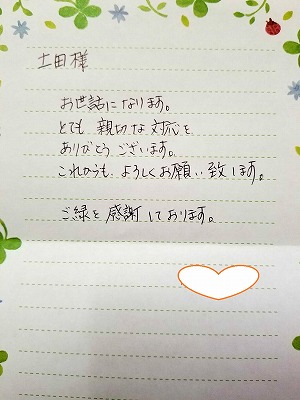 土田様
お世話になります。
とても 親切な対応を
ありがとうございます。
これからも よろしくお願い致します。
ご縁を感謝しております。